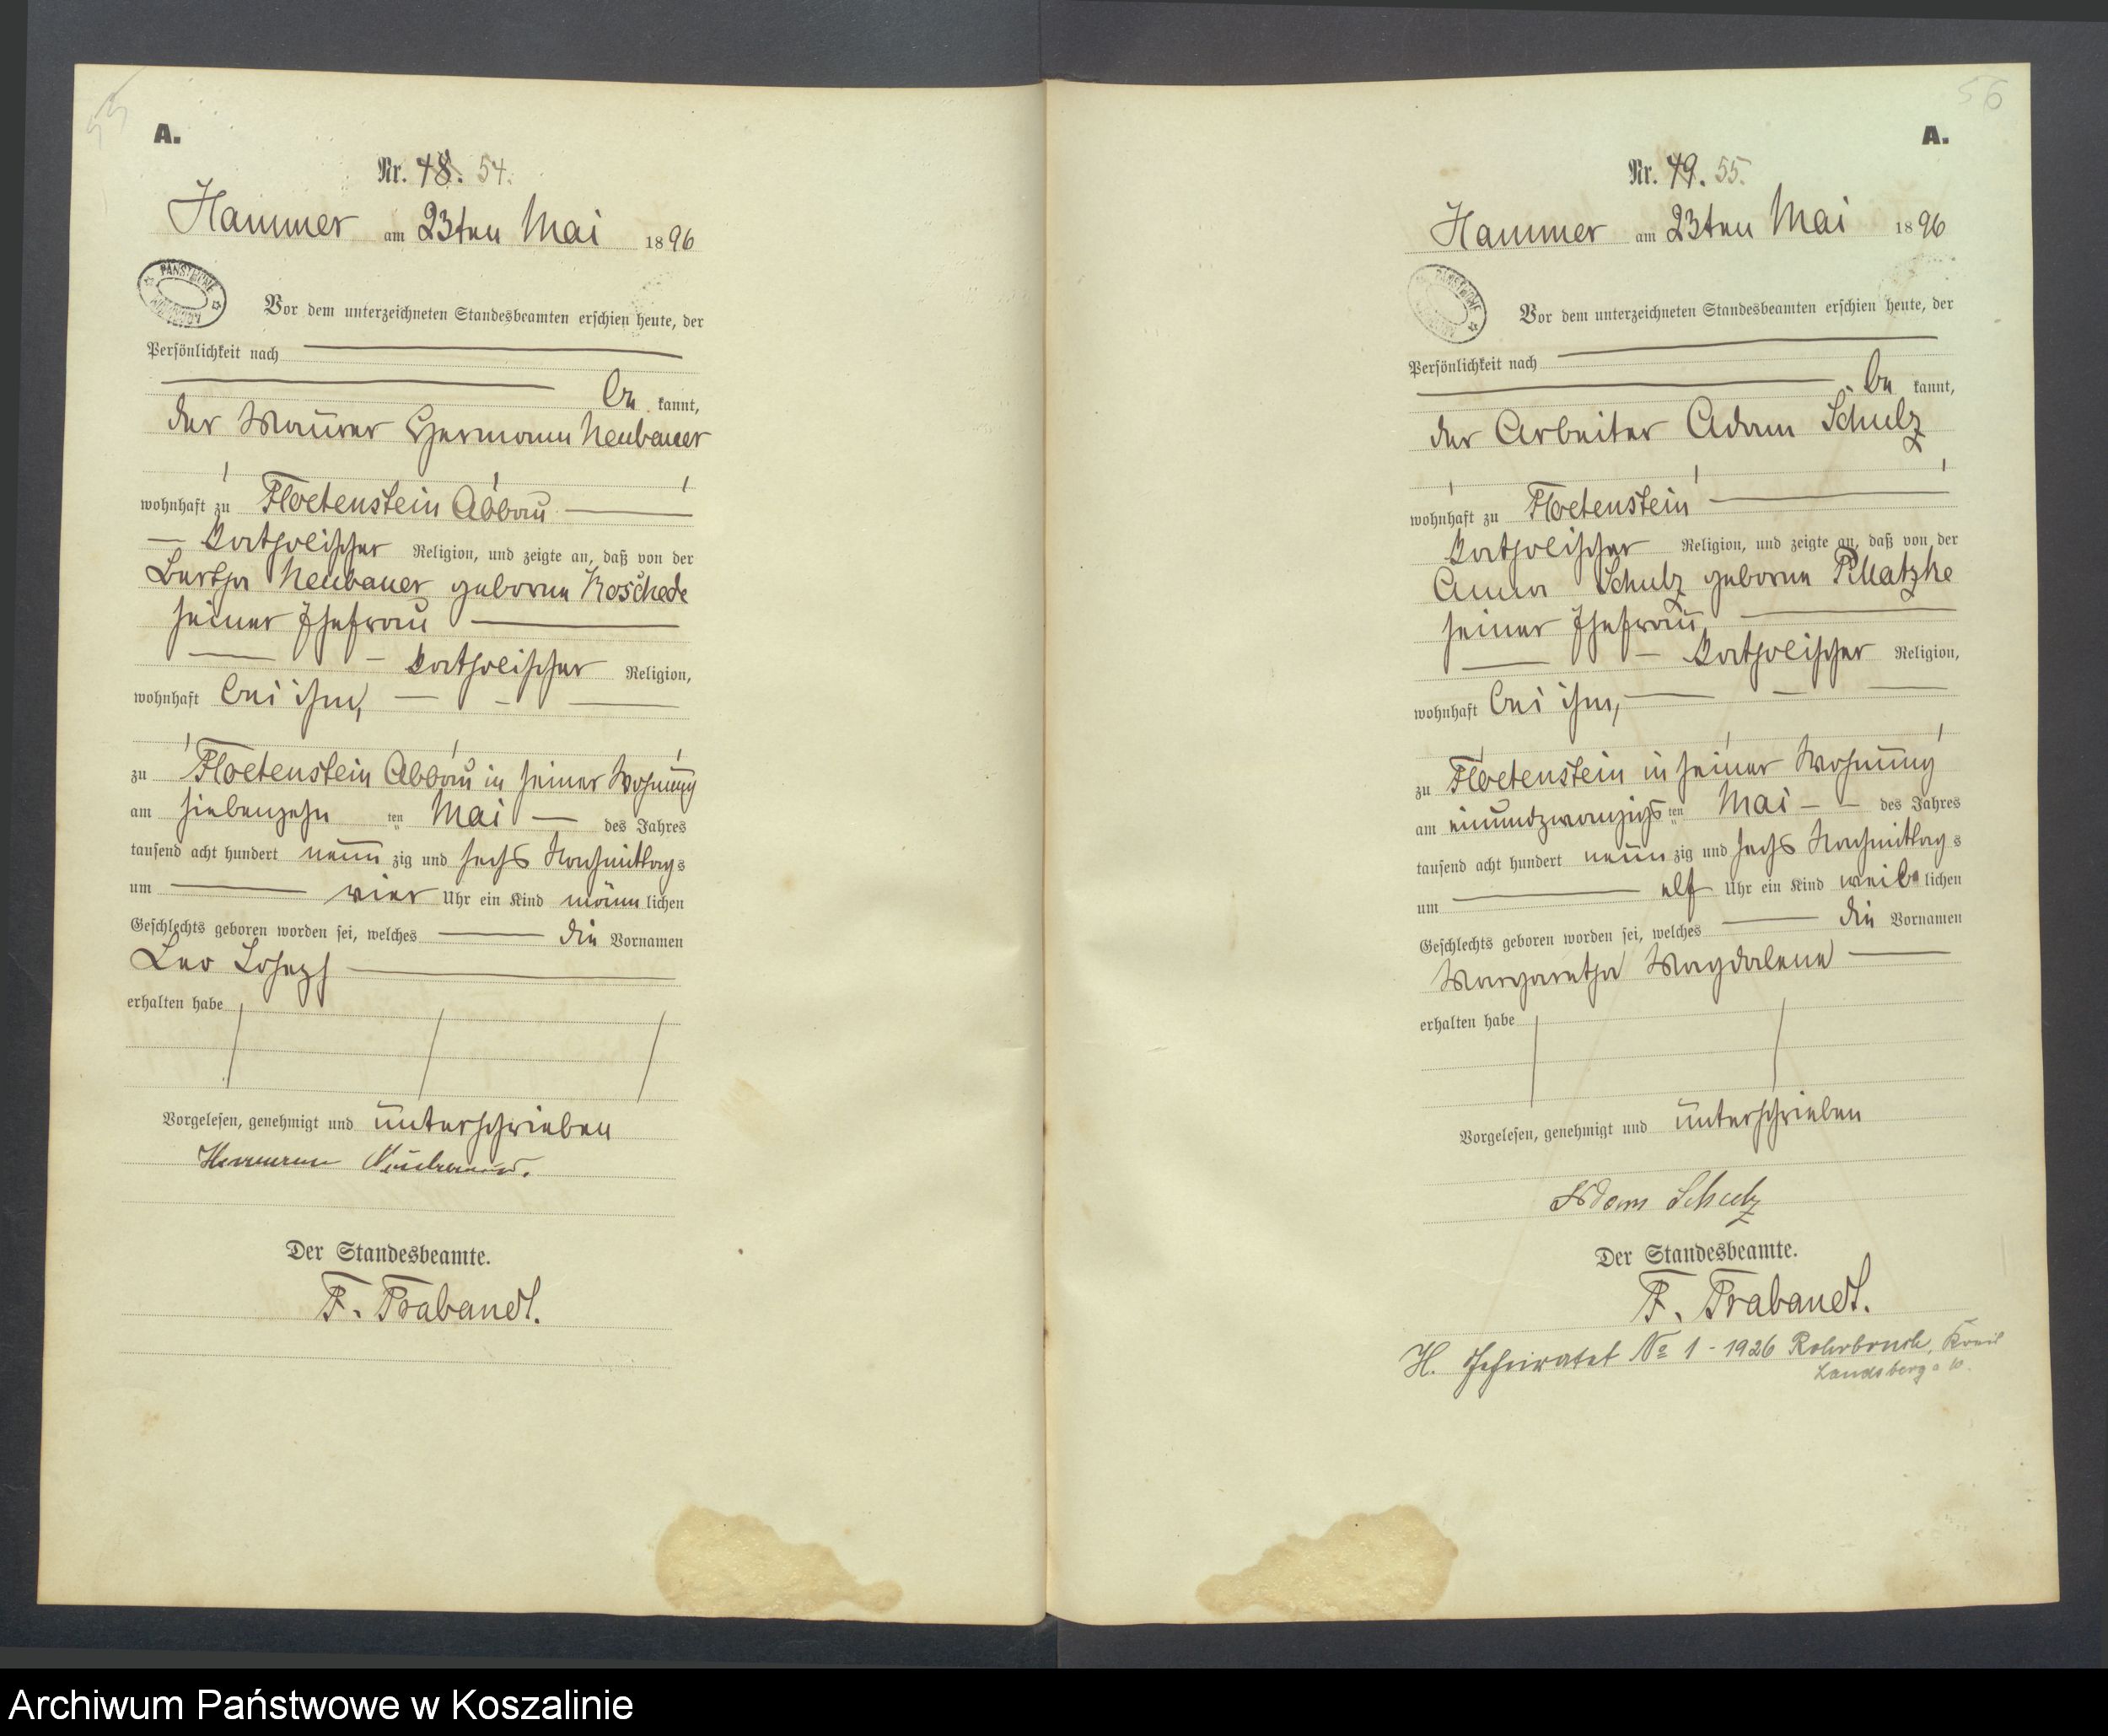 55
A.
Nr. 48. 54.
Hammer am 23ten Mai 1896
PAŃSTWOWE
Vor dem unterzeichneten Standesbeamten erschien heute, der
Persönlichkeit nach
be kannt,
der Maurer Hermann Neubauer
wohnhaft zu Floetenstein Abbau
katholischer Religion, und zeigte an, daß von der
Bertha Neubauer geborene Koschede
seiner Ehefrau
katholischer Religion,
wohnhaft bei ihm,
zu Floetenstein Abbau in seiner Wohnung
am siebenzehn ten Mai des Jahres
tausend acht hundert neun zig und sechs Nachmittags
um vier Uhr ein Kind männ lichen
Geschlechts geboren worden sei, welches die Vornamen
Leo Joseph
erhalten habe
Vorgelesen, genehmigt und unterschrieben
Hermann Neubauer.
Der Standesbeamte.
F. Trabandt.
56
A.
Nr. 49. 55.
Hammer am 23ten Mai 1896
PAŃSTWOWE
Vor dem unterzeichneten Standesbeamten erschien heute, der
Persönlichkeit nach
be kannt,
der Arbeiter Adam Schulz
wohnhaft zu Floetenstein
katholischer Religion, und zeigte an, daß von der
Anna Schulz geborene Pillatzke
seiner Ehefrau
katholischer Religion,
wohnhaft bei ihm,
zu Floetenstein in seiner Wohnung
am einundzwanzigs ten Mai des Jahres
tausend acht hundert neun zig und sechs Nachmittag s
um elf Uhr ein Kind weib lichen
Geschlechts geboren worden sei, welches die Vornamen
Margaretha Magdalene
erhalten habe
Vorgelesen, genehmigt und unterschrieben
Adam Schulz
Der Standesbeamte.
F. Trabandt.
H. Geheiratet No 1 - 1926 Rohrbruch, Kreis
Landsberg a W.
Archiwum Państwowe w Koszalinie